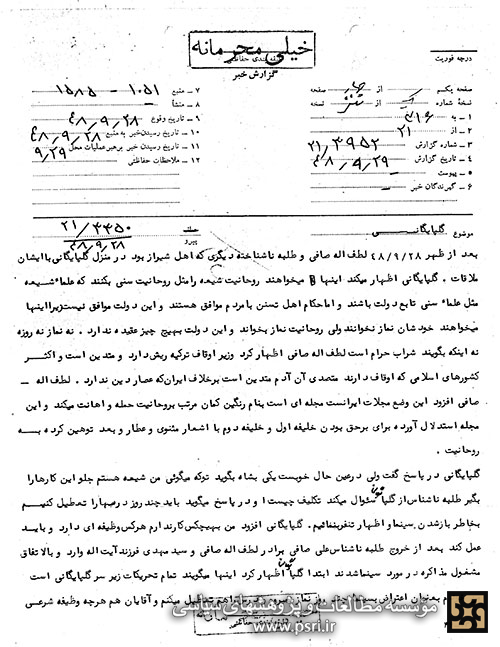 خیلی محرمانه
طبقه بندی حفاظتی
گزارش خبر
درجه فوریت
صفحه یکم از چهار صفحه
نسخه شماره از نسخه
۱ - به ۳۱۶
۲ - از ۲۱
۳ - شماره گزارش ۲۱/۳۹۵۲
۴ - تاریخ گزارش ۴۸/۹/۲۹
۵ - پیوست
۶ - گیرندگان خبر
۷ - منبع ۱۰۵۱ - ۱۵۸۵
۸ - منشأ
۹ - تاریخ وقوع ۴۸/۹/۲۸
۱۰ - تاریخ رسیدن خبر به منبع ۴۸/۹/۲۸
۱۱ - تاریخ رسیدن خبر برهبر عملیات محل ۹/۲۹
۱۲ - ملاحظات حفاظتی
موضوع گلپایگانی
پیرو ۲۱/۳۳۵۰
۴۸/۹/۲۸
بعد از ظهر ۴۸/۹/۲۸ لطف اله صافی و طلبه ناشناخته دیگری که اهل شیراز بود در منزل گلپایگانی با ایشان
ملاقات . گلپایگانی اظهار میکند اینها میخواهند روحانیت شیعه را مثل روحانیت سنی بکنند که علماء شیعه
مثل علماء سنی تابع دولت باشند و اما حکام اهل تسنن با مردم موافق هستند و این دولت موافق نیست زیرا اینها
میخواهند خودشان نماز نخوانند ولی روحانیت نماز بخواند و این دولت بهیچ چیز عقیده ندارد . نه نماز نه روزه
نه اینکه بگویند شراب حرام است لطف اله صافی اظهار کرد وزیر اوقاف ترکیه ریش دارد و متدین است و اکثر
کشورهای اسلامی که اوقاف دارند متصدی آن آدم متدین است برخلاف ایران که عصار دین ندارد . لطف اله -
صافی افزود این وضع مجلات ایرانست مجله ای است بنام رنگین کمان مرتب بروحانیت حمله و اهانت میکند و این
مجله استدلال آورده برای برحق بودن خلیفه اول و خلیفه دوم با اشعار مثنوی و عطار و بعد توهین کرده به
روحانیت .
گلپایگانی در پاسخ گفت ولی در عین حال خوبست یکی بشاه بگوید تو که میگوئی من شیعه هستم جلو این کارها را
بگیر طلبه ناشناس از گلپایگانی سئوال میکند تکلیف چیست او در پاسخ میگوید باید چند روز درسها را تعطیل کنیم
بخاطر باز شدن سینما و اظهار تنفر بنمائیم . گلپایگانی افزود من بهیچکس کار ندارم هرکس وظیفه ای دارد و باید
عمل کند بعد از خروج طلبه ناشناس علی صافی برادر لطف اله صافی و سید مهدی فرزند آیت اله وارد و بالاتفاق
مشغول مذاکره در مورد سینما شدند ابتدا گلپایگانی اظهار کرد اینها میگویند تمام تحریکات زیر سر گلپایگانی است
بعنوان اعتراض بسینما چند روز نماز تعطیل میکنم و آقایان هم هرچه وظیفه شرعی
موسسه مطالعات و پژوهشهای سیاسی
www.psri.ir